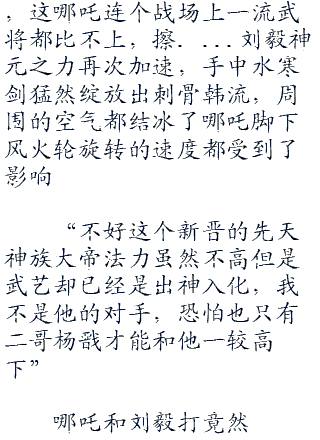 ，这哪吒连个战场上一流武
将都比不上，擦．...刘毅神
元之力再次加速，手中水寒
剑猛然绽放出刺骨韩流，周
围的空气都结冰了哪吒脚下
风火轮旋转的速度都受到了
影响
“不好这个新晋的先天
神族大帝法力虽然不高但是
武艺却已经是出神入化，我
不是他的对手，恐怕也只有
二哥杨戬才能和他一较高
下”
哪吒和刘毅打竟然